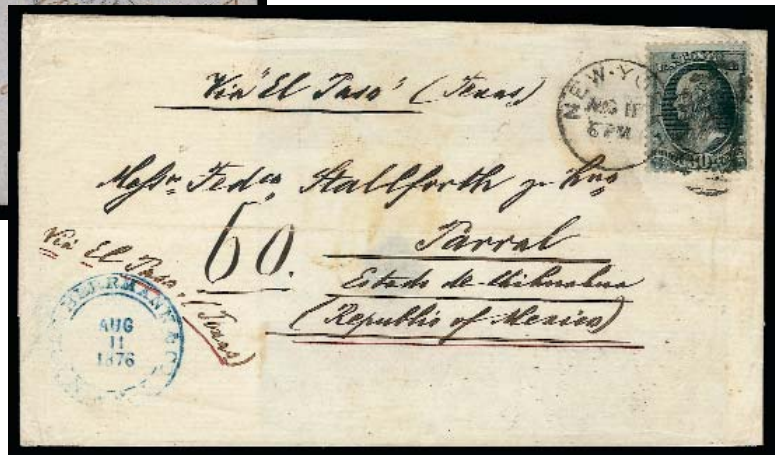 Via "El Paso" (Texas)
NEW-YO
AUG 11
6 PM
Messrs Fedco Stallforth y Hno
60.
Parral
Estado de Chihuahua
(Republic of Mexico)
Via El Paso, (Texas)
AUG
11
1876